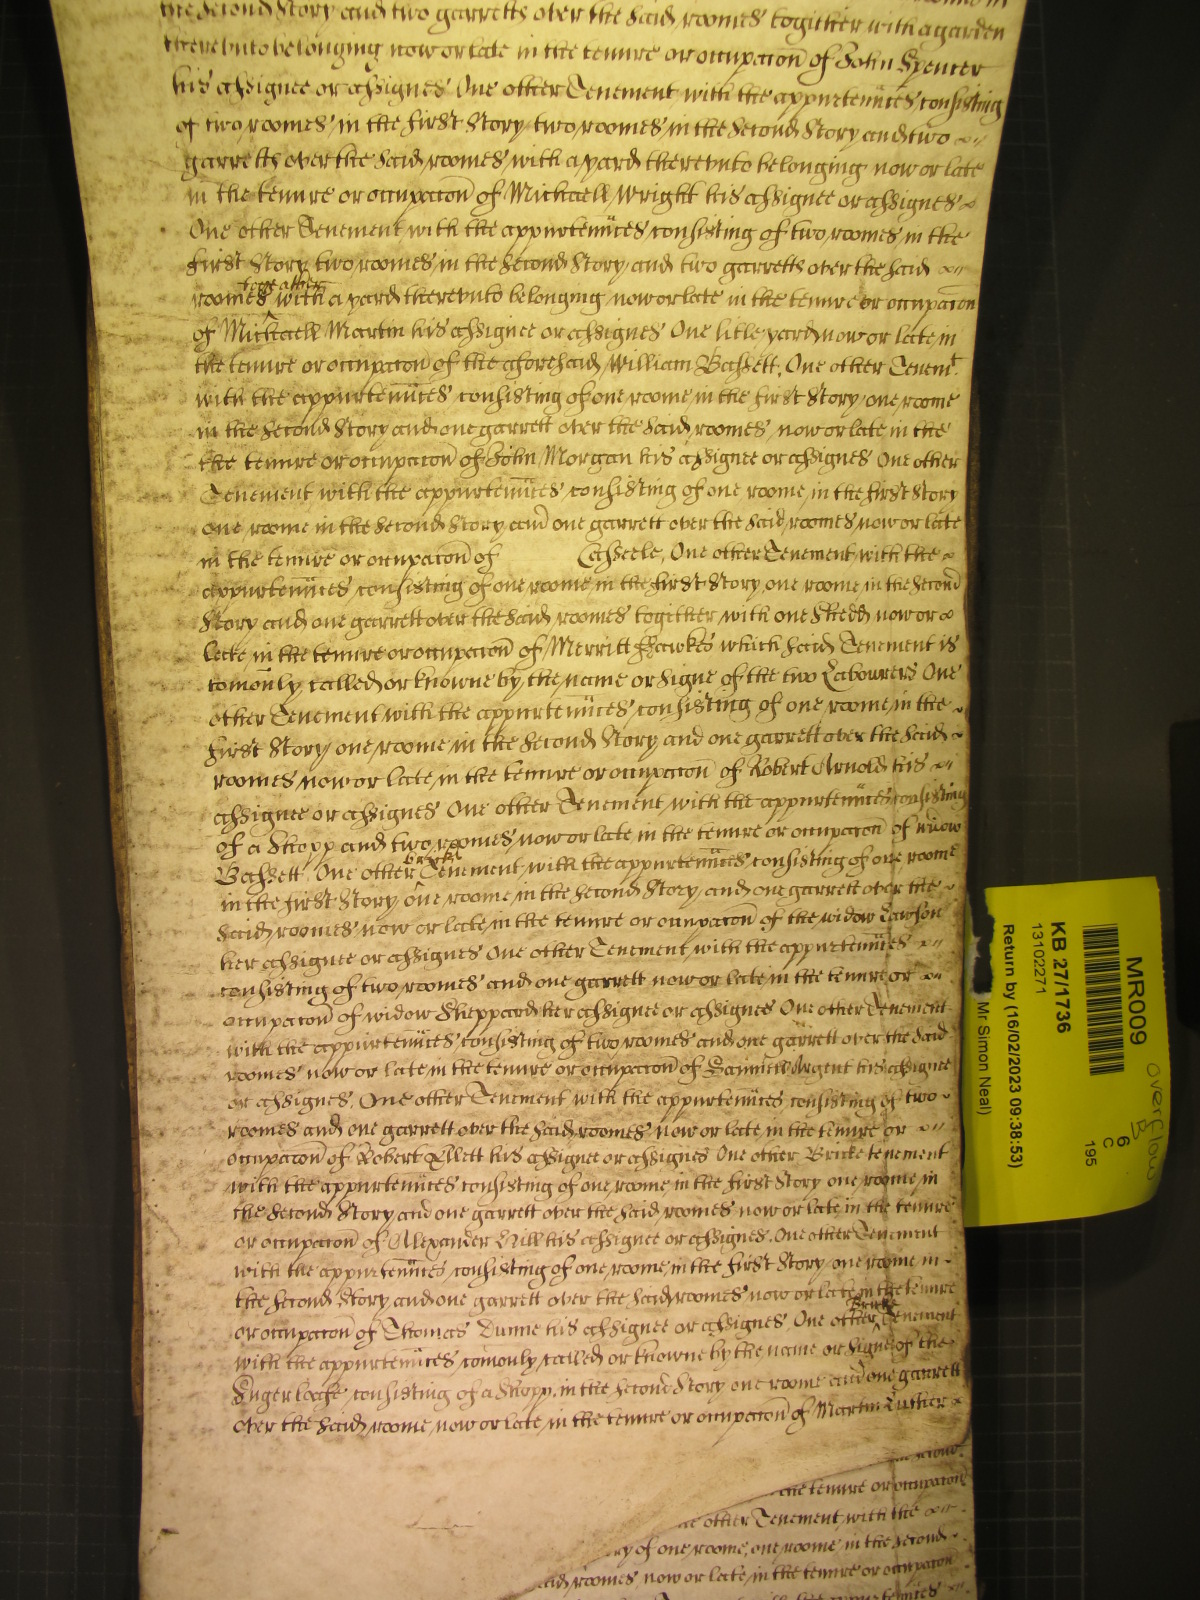 the second Story and two garretts over the said roomes togither with a garden
therevnto belonging now or late in the tenure or occupacon of John Spencer
his assignee or assignes One other Tenement with the appurtennces consisting
of two roomes in the first Story two roomes in the second Story and two
garretts over the said roomes with a yard therevnto belonging now or late
in the tenure or occupacon of Michaell Wright his assignee or assignes
One other Tenement with the appurtennces consisting of two roomes in the
first Story two roomes in the second Story and two garretts over the said
togeather
roomes with a yard therevnto belonging now or late in the tenure or occupacon
of Michaell Martin his assignee or assignes One litle yard now or late in
the tenure or occupacon of the aforesaid William Bassett, One other Tenemt
with the appurtennces consisting of one roome in the first Story one roome
in the second Story and one garrett over the said roomes now or late in the
the tenure or occupacon of John Morgan his assignee or assignes One other
Tenement with the appurtennces consisting of one roome in the first Story
one roome in the second Story and one garrett over the said roomes now or late
in the tenure or occupacon of Casseele, One other Tenement with the
appurtennces consisting of one roome in the first Story one roome in the second
Story and one garrett over the said roomes togither with one Shedd now or
late in the tenure or occupacon of Merritt Hawkes which said Tenement is
comonly called or knowne by the name or signe of the two Labourers One
other Tenement with the appurtennces consisting of one roome in the
first Story one roome in the second Story and one garrett over the said
roomes now or late in the tenure or occupacon of Robert Arnold his
assignee or assignes One other Tenement with the appurtennces consisting
of a Shopp and two roomes now or late in the tenure or occupacon of widow
bricke
Bassett, One other Tenement with the appurtennces consisting of one roome
in the first Story one roome in the second Story and one garrett over the
said roomes now or late in the tenure or occupacon of the widow Lawson
her assignee or assignes One other Tenement with the appurtennces
consisting of two roomes and one garrett now or late in the tenure or
occupacon of widow Sheppard her assignee or assignes One other Tenement
with the appurtennces consisting of two roomes and one garrett over the said
roomes now or late in the tenure or occupacon of Samuell Argent his assignee
or assignes, One other Tenement with the appurtennces consisting of two
roomes and one garrett over the said roomes now or late in the tenure or
occupacon of Robert Ellett his assignee or assignes One other Bricke tenement
with the appurtennces consisting of one roome in the first Story one roome in
the second Story and one garrett over the said roomes now or late in the tenure
or occupacon of Alexander Hill his assignee or assignes. One other Tenement
with the appurtennces consisting of one roome in the first Story one roome in
the second Story and one garrett over the said roomes now or late in the tenure
Bricke
or occupacon of Thomas Dunne his assignee or assignes, One other Tenement
with the appurtennces comonly called or knowne by the name or signe of the
Suger loafe consisting of a Shopp, in the second Story one roome and one garrett
over the said roome now or late in the tenure or occupacon of Martin Luther
the tenure or occupacon
other Tenement with the
of one roome, one roome in the second
said roomes now or late in the tenure or occupacon
the appurtennces
MR009
KB 27/1736
13102271
Return by (16/02/2023 09:38:53)
Mr Simon Neal)
6
C
195
overflow
B